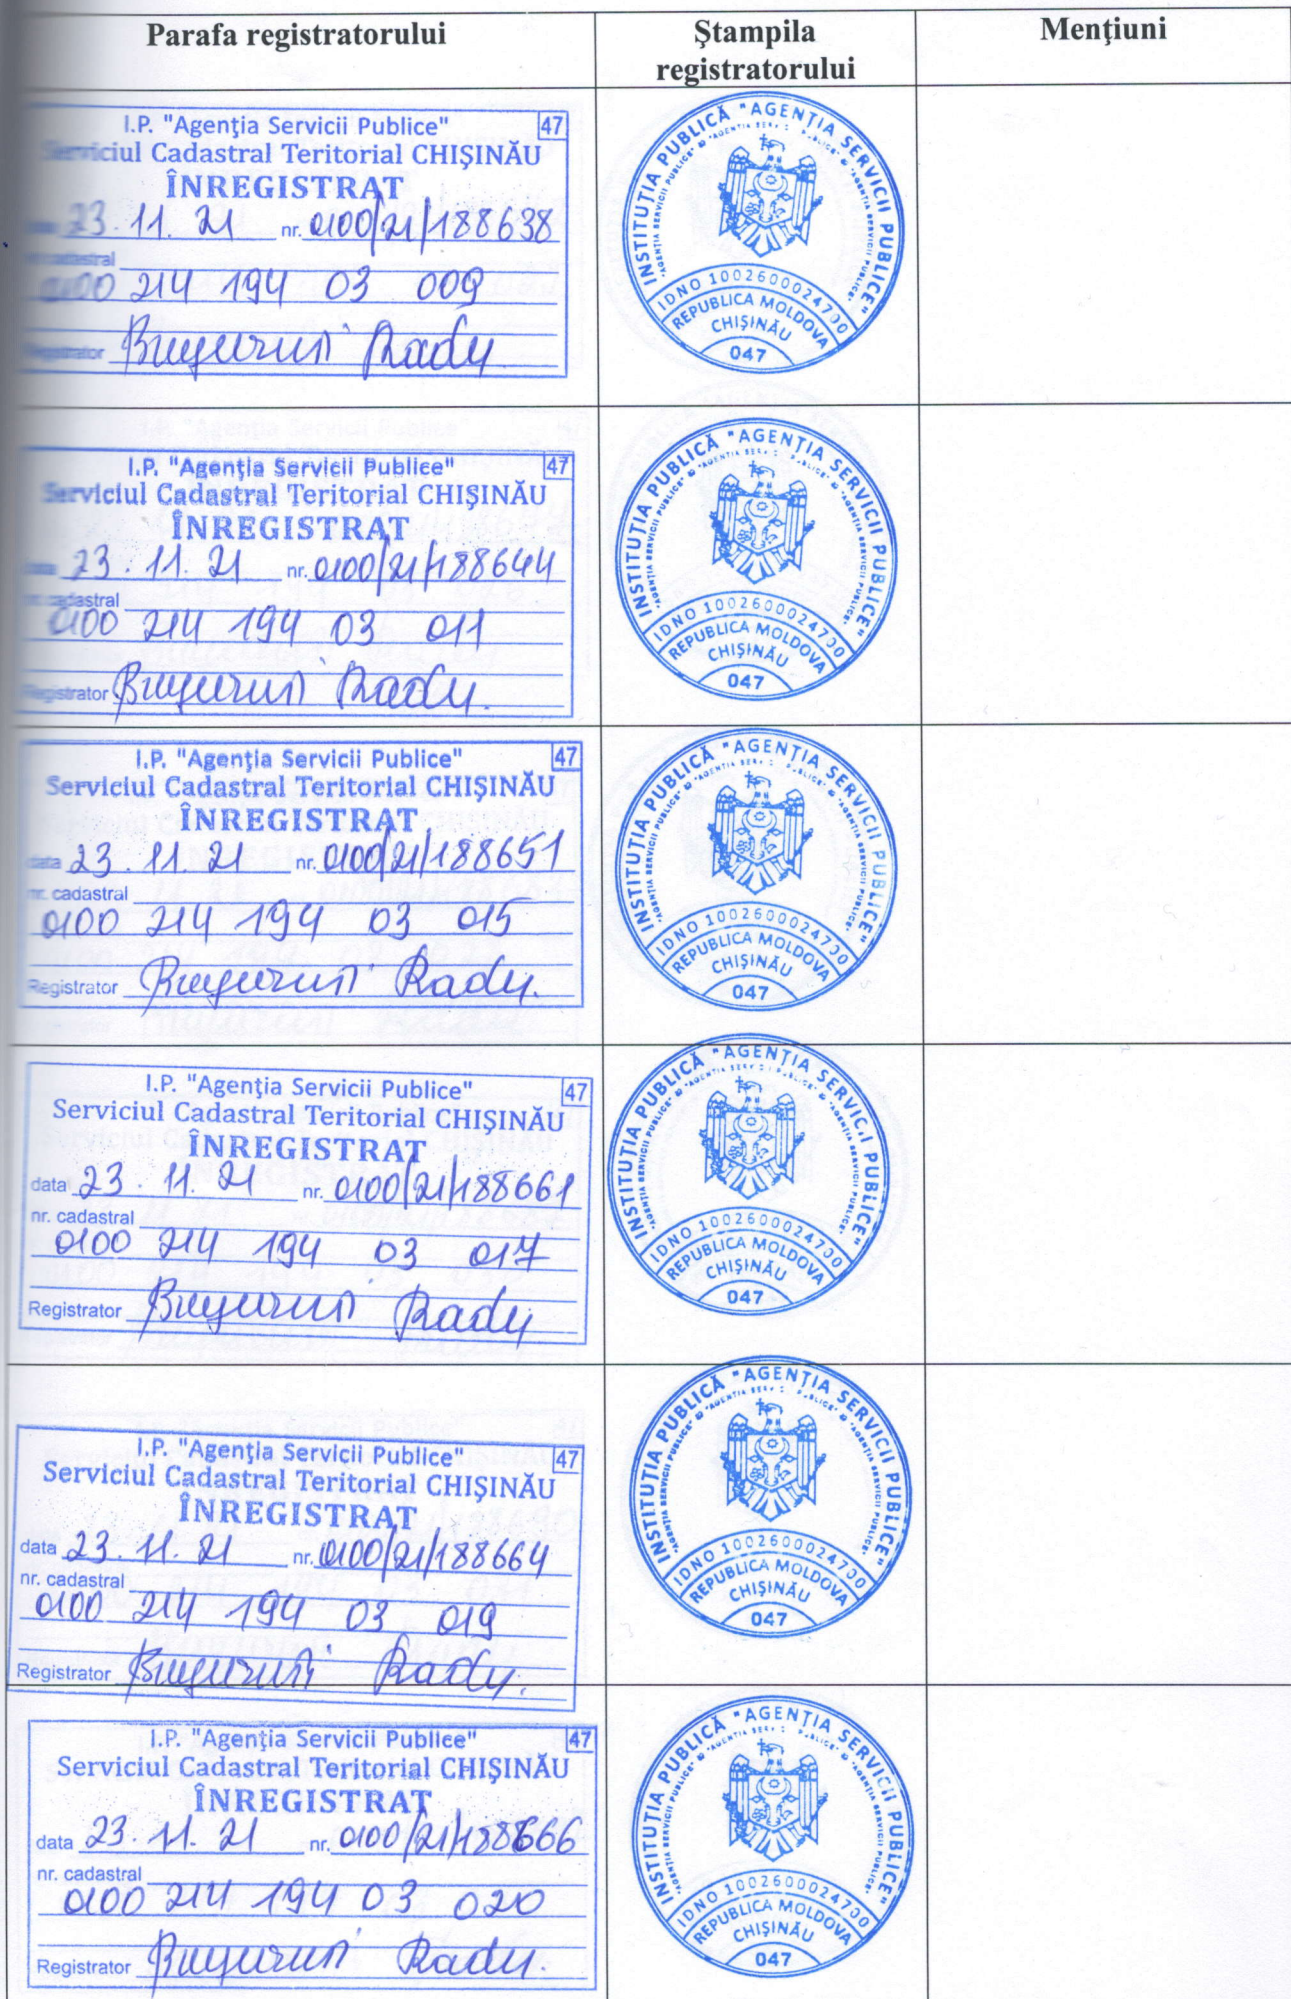 Parafa registratorului
Ştampila registratorului
Menţiuni
I.P. "Agenţia Servicii Publice" 47
Serviciul Cadastral Teritorial CHIŞINĂU
ÎNREGISTRAT
23.11.21 nr. 0100/21/188638
cadastral
0100 214 194 03 009
Registrator Radu
INSTITUŢIA PUBLICĂ "AGENŢIA SERVICII PUBLICE"
IDNO 1002600024700
REPUBLICA MOLDOVA
CHIŞINĂU
047
I.P. "Agenţia Servicii Publice" 47
Serviciul Cadastral Teritorial CHIŞINĂU
ÎNREGISTRAT
23.11.21 nr. 0100/21/188644
cadastral
0100 214 194 03 011
Registrator Radu
INSTITUŢIA PUBLICĂ "AGENŢIA SERVICII PUBLICE"
IDNO 1002600024700
REPUBLICA MOLDOVA
CHIŞINĂU
047
I.P. "Agenţia Servicii Publice" 47
Serviciul Cadastral Teritorial CHIŞINĂU
ÎNREGISTRAT
data 23.11.21 nr. 0100/21/188651
nr. cadastral
0100 214 194 03 015
Registrator Radu
INSTITUŢIA PUBLICĂ "AGENŢIA SERVICII PUBLICE"
IDNO 1002600024700
REPUBLICA MOLDOVA
CHIŞINĂU
047
I.P. "Agenţia Servicii Publice" 47
Serviciul Cadastral Teritorial CHIŞINĂU
ÎNREGISTRAT
data 23.11.21 nr. 0100/21/188661
nr. cadastral
0100 214 194 03 017
Registrator Radu
INSTITUŢIA PUBLICĂ "AGENŢIA SERVICII PUBLICE"
IDNO 1002600024700
REPUBLICA MOLDOVA
CHIŞINĂU
047
I.P. "Agenţia Servicii Publice" 47
Serviciul Cadastral Teritorial CHIŞINĂU
ÎNREGISTRAT
data 23.11.21 nr. 0100/21/188664
nr. cadastral
0100 214 194 03 019
Registrator Radu
INSTITUŢIA PUBLICĂ "AGENŢIA SERVICII PUBLICE"
IDNO 1002600024700
REPUBLICA MOLDOVA
CHIŞINĂU
047
I.P. "Agenţia Servicii Publice" 47
Serviciul Cadastral Teritorial CHIŞINĂU
ÎNREGISTRAT
data 23.11.21 nr. 0100/21/188666
nr. cadastral
0100 214 194 03 020
Registrator Radu
INSTITUŢIA PUBLICĂ "AGENŢIA SERVICII PUBLICE"
IDNO 1002600024700
REPUBLICA MOLDOVA
CHIŞINĂU
047